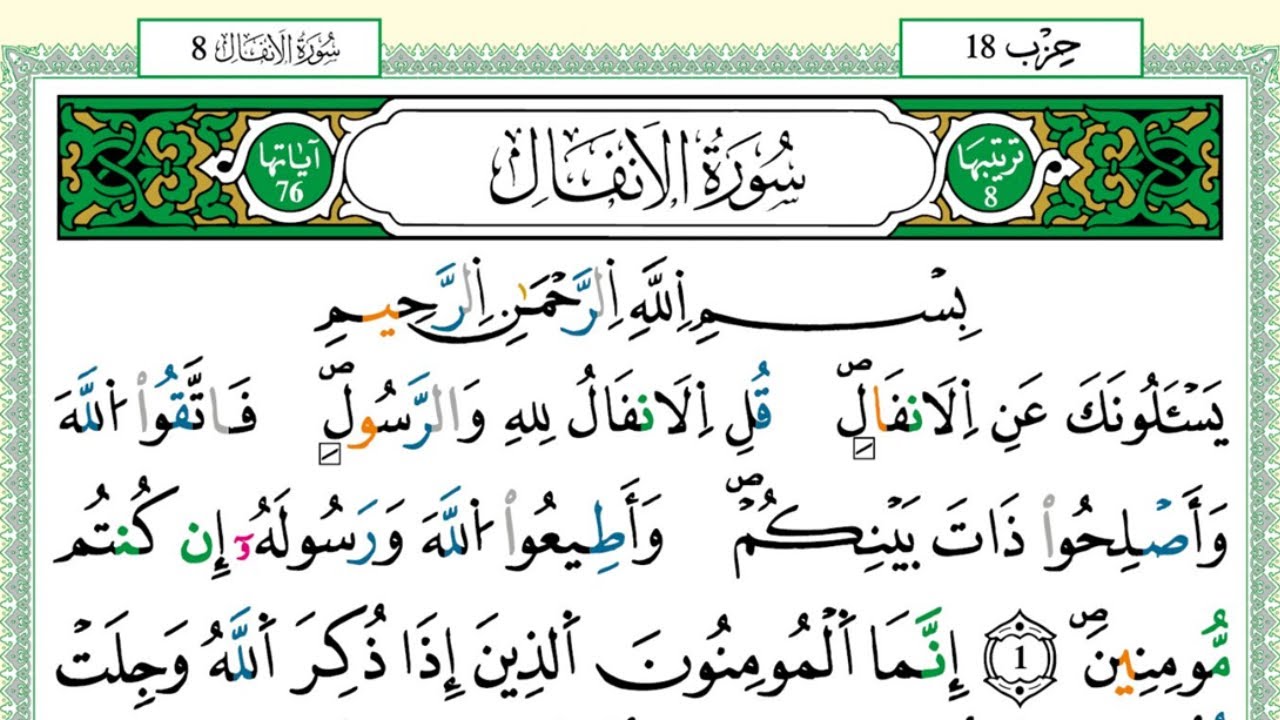 حِزْب 18
سُورَةُ الَانفَالِ 8
تَرتِيبُهَا 8
سُورَةُ الَانفَالِ
آيَاتُهَا 76
بِسْمِ اِللَّهِ اِلرَّحْمَٰنِ اِلرَّحِيمِ
يَسْـَٔلُونَكَ عَنِ اِلَانفَالِۖ قُلِ اِلَانفَالُ لِلهِ وَالرَّسُولِۖ فَاتَّقُوا۟ اللَّهَ
وَأَصْلِحُوا۟ ذَاتَ بَيْنِكُمْۖ وَأَطِيعُوا۟ اللَّهَ وَرَسُولَهُۥٓ إِن كُنتُم
مُّومِنِينَۖ 1 إِنَّمَا اَلْمُومِنُونَ اَلذِينَ إِذَا ذُكِرَ اَللَّهُ وَجِلَتْ